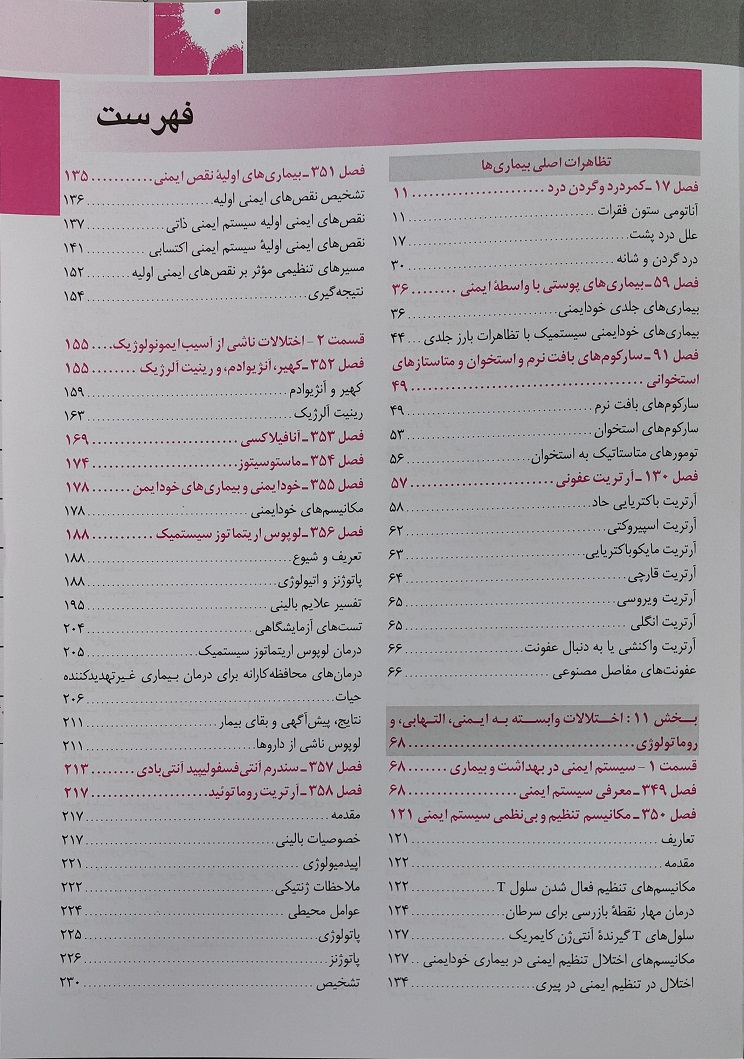 فهرست
تظاهرات اصلی بیماری‌ها
فصل ۱۷ ـ کمردرد و گردن درد ........................ ۱۱
آناتومی ستون فقرات ........................ ۱۱
علل درد پشت ........................ ۱۷
درد گردن و شانه ........................ ۳۰
فصل ۵۹ ـ بیماری‌های پوستی با واسطهٔ ایمنی ........ ۳۶
بیماری‌های جلدی خودایمنی ........................ ۳۶
بیماری‌های خودایمنی سیستمیک با تظاهرات بارز جلدی ... ۴۴
فصل ۹۱ ـ سارکوم‌های بافت نرم و استخوان و متاستازهای
استخوانی ........................ ۴۹
سارکوم‌های بافت نرم ........................ ۴۹
سارکوم‌های استخوان ........................ ۵۳
تومورهای متاستاتیک به استخوان ........................ ۵۶
فصل ۱۳۰ ـ آرتریت عفونی ........................ ۵۷
آرتریت باکتریایی حاد ........................ ۵۸
آرتریت اسپیروکتی ........................ ۶۲
آرتریت مایکوباکتریایی ........................ ۶۳
آرتریت قارچی ........................ ۶۴
آرتریت ویروسی ........................ ۶۵
آرتریت انگلی ........................ ۶۵
آرتریت واکنشی یا به دنبال عفونت ........................ ۶۶
عفونت‌های مفاصل مصنوعی ........................ ۶۶
بخش ۱۱ : اختلالات وابسته به ایمنی، التهابی، و
روماتولوژی ........................ ۶۸
قسمت ۱ - سیستم ایمنی در بهداشت و بیماری ........ ۶۸
فصل ۳۴۹ ـ معرفی سیستم ایمنی ........................ ۶۸
فصل ۳۵۰ ـ مکانیسم تنظیم و بی‌نظمی سیستم ایمنی ۱۲۱
تعاریف ........................ ۱۲۱
مقدمه ........................ ۱۲۲
مکانیسم‌های تنظیم فعال شدن سلول T ........................ ۱۲۲
درمان مهار نقطهٔ بازرسی برای سرطان ........................ ۱۲۴
سلول‌های T گیرندهٔ آنتی‌ژن کایمریک ........................ ۱۲۷
مکانیسم‌های اختلال تنظیم ایمنی در بیماری خودایمنی .. ۱۲۷
اختلال در تنظیم ایمنی در پیری ........................ ۱۳۴
فصل ۳۵۱ ـ بیماری‌های اولیهٔ نقص ایمنی ........... ۱۳۵
تشخیص نقص‌های ایمنی اولیه ........................ ۱۳۶
نقص‌های ایمنی اولیه سیستم ایمنی ذاتی ........................ ۱۳۷
نقص‌های ایمنی اولیهٔ سیستم ایمنی اکتسابی ........................ ۱۴۱
مسیرهای تنظیمی مؤثر بر نقص‌های ایمنی اولیه ........................ ۱۵۲
نتیجه‌گیری ........................ ۱۵۴
قسمت ۲ - اختلالات ناشی از آسیب ایمونولوژیک .... ۱۵۵
فصل ۳۵۲ ـ کهیر، آنژیوادم، و رینیت آلرژیک ......... ۱۵۵
کهیر و آنژیوادم ........................ ۱۵۹
رینیت آلرژیک ........................ ۱۶۳
فصل ۳۵۳ ـ آنافیلاکسی ........................ ۱۶۹
فصل ۳۵۴ ـ ماستوسیتوز ........................ ۱۷۴
فصل ۳۵۵ ـ خودایمنی و بیماری‌های خودایمن ....... ۱۷۸
مکانیسم‌های خودایمنی ........................ ۱۷۸
فصل ۳۵۶ ـ لوپوس اریتماتوز سیستمیک ........... ۱۸۸
تعریف و شیوع ........................ ۱۸۸
پاتوژنز و اتیولوژی ........................ ۱۸۸
تفسیر علایم بالینی ........................ ۱۹۵
تست‌های آزمایشگاهی ........................ ۲۰۴
درمان لوپوس اریتماتوز سیستمیک ........................ ۲۰۵
درمان‌های محافظه‌کارانه برای درمان بیماری غیرتهدیدکننده
حیات ........................ ۲۰۶
نتایج، پیش‌آگهی و بقای بیمار ........................ ۲۱۱
لوپوس ناشی از داروها ........................ ۲۱۱
فصل ۳۵۷ ـ سندرم آنتی‌فسفولیپید آنتی‌بادی ....... ۲۱۳
فصل ۳۵۸ ـ آرتریت روماتوئید ........................ ۲۱۷
مقدمه ........................ ۲۱۷
خصوصیات بالینی ........................ ۲۱۷
اپیدمیولوژی ........................ ۲۲۱
ملاحظات ژنتیکی ........................ ۲۲۲
عوامل محیطی ........................ ۲۲۴
پاتولوژی ........................ ۲۲۵
پاتوژنز ........................ ۲۲۶
تشخیص ........................ ۲۳۰